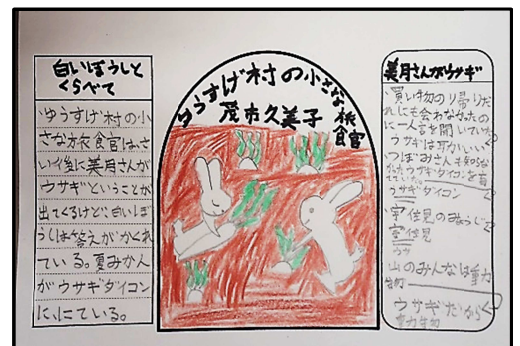 白いぼうしと
くらべて
ゆうすげ村の小
さな旅館はさ
い後に美月さんが
ウサギということが
出てくるけど、白いぼ
うしは答えがかくれ
ている。夏みかん
がウサギダイコン
ににている。
ゆうすげ村の小さな旅館
茂市久美子
美月さんがウサギ
買い物のり帰りだ
れにも会わなかったの
に一言を聞いていた
ウサギは耳がいい
つぼみさんも知らな
ウサギダイコン
宇佐見のみょうじ
宇佐見
ウサ
山のみんなは重力
ウサギだから